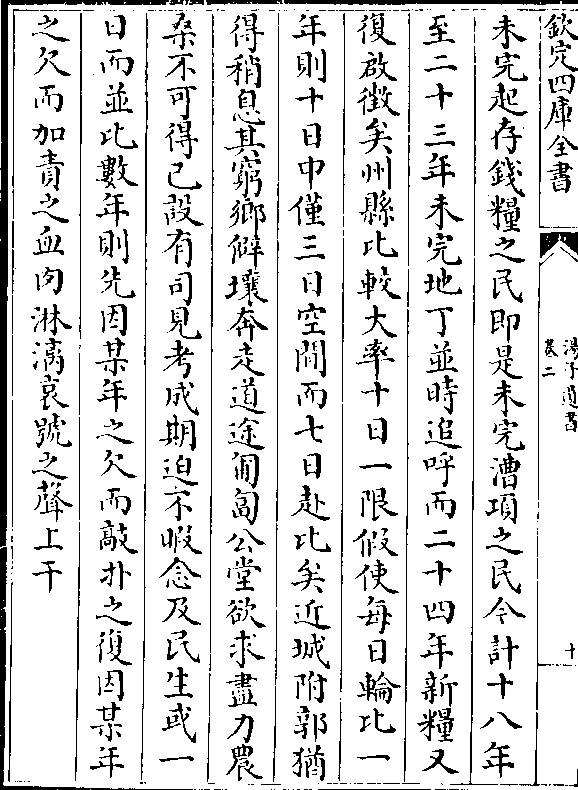 欽定四庫全書
湯子遺書
卷二
十
未完起存錢糧之民即是未完漕項之民今計十八年
至二十三年未完地丁並時追呼而二十四年新糧又
復啟徵矣州縣比較大率十日一限假使每日輪比一
年則十日中僅三日空閒而七日赴比矣近城附郭猶
得稍息其窮鄉僻壤奔走道途匍匐公堂欲求盡力農
桑不可得已設有司見考成期迫不暇念及民生或一
日而並比數年則先因某年之欠而敲扑之復因某年
之欠而加責之血肉淋漓哀號之聲上干